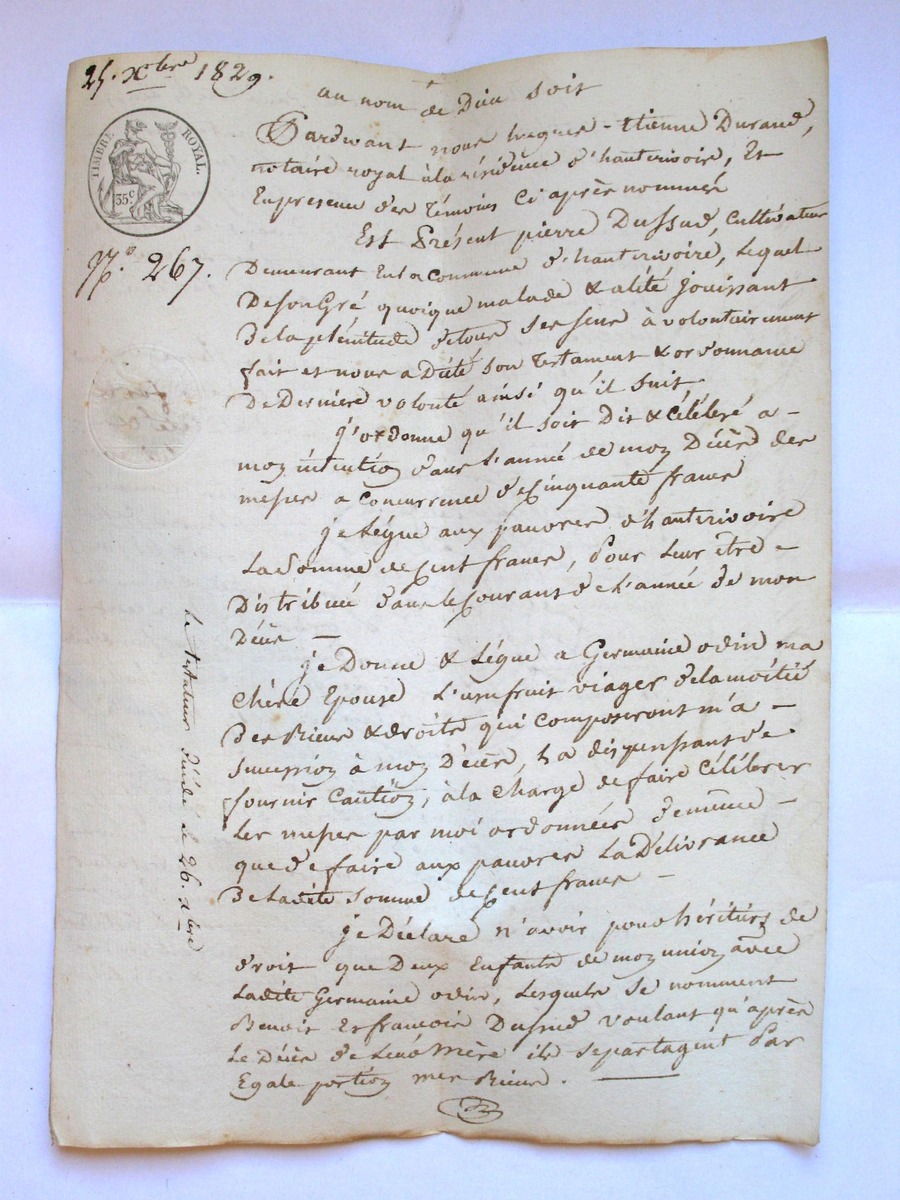 25. Xbre 1829.
au nom de Dieu soit
TIMBRE ROYAL.
35 c
Pardevant nous hugues-Etienne Durand,
notaire royal à la résidence d'hauterivoire, Et
En presence des Témoins Ci après nommés
Est Présent pierre Dussud, Cultivateur
N.o 267.
Demeurant En la Commune d'hauterivoire, Lequel
De son Gré quoique malade & alité Jouissant
De la plénitude de tous ses sens à volontairement
fait et nous a Dicté son Testament & ordonnance
De Derniere volonté ainsi qu'il suit
j'ordonne qu'il soit Dit & Célébré a -
mon intention dans l'année de mon Décès des
messes a Concurrence de Cinquante francs
je Légue aux pauvres d'hauterivoire
La Somme de Cent francs, Pour Leur être -
Distribuée dans le Courant de l'année de mon
Décès -
je Donne & Légue a Germaine odin ma
Chère Epouse L'usufruit viager de la moitié
Des Biens & droits qui Composeront m'a -
succession à mon Décès, La dispensant de
fournir Caution, à la Charge de faire Célébrer
Les messes par moi ordonnées de même -
que de faire aux pauvres La Délivrance
De Ladite somme de Cent francs -
je Déclare n'avoir pour héritiers de
droit que Deux Enfants de mon union avec
Ladite Germaine odin, Lesquels se nomment
Benoit Et francois Dussud voulant qu'après
Le Décès de Leur Mère ils se partagent Par
Egale portion mes Biens.
Le testateur décédé le 26. xbre